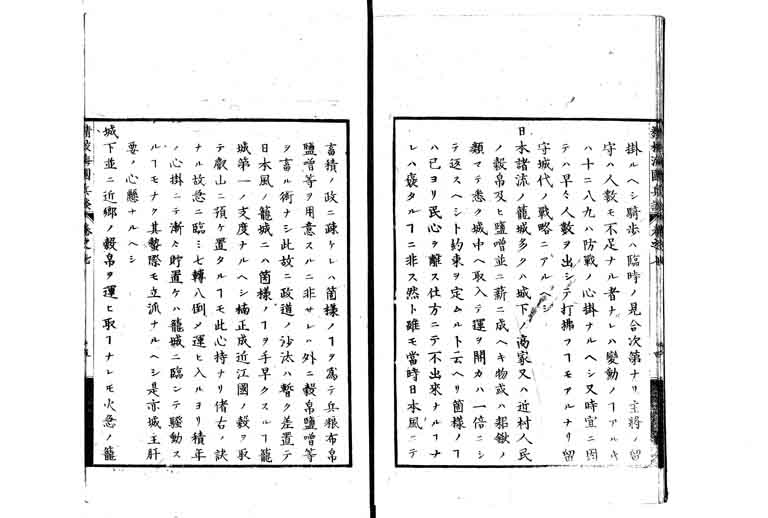 掛ルヘシ騎歩ハ臨時ノ見合次第ナリ主将ノ留
守ハ人数モ不足ナル者ナレハ變動ノヿアルキ
ハ十ニ八九ハ防戰ノ心掛ナルヘシ又時宜ニ因
テハ早々人数ヲ出シテ打拂フヿモアルナリ留
守城代ノ戰略ニアルヘシ
日本諸流ノ籠城多クハ城下ノ商家又ハ近村人民
ノ穀帛及ヒ鹽噌並ニ薪ニ成ヘキ物或ハ耜鍬ノ
類マテ悉ク城中ヘ取入テ運ヲ開カハ一倍ニシ
テ返スヘシト約束ヲ定ムルト云ヘリ箇様ノヿ
ハ已ヨリ民心ヲ離ス仕方ニテ不出來ナルヿナ
レハ褒タルヿニ非ス然ト雖モ當時日本風ニテ
畜積ノ政ニ疎ケレハ箇様ノヿヲ為テ兵粮布帛
鹽噌等ヲ用意スルニ非サレハ外ニ穀帛鹽噌等
ヲ畜ル術ナシ此故ニ政道ノ沙汰ハ暫ク差置テ
日本風ノ籠城ニハ箇様ノヿヲ手早クスルヿ籠
城第一ノ支度ナルヘシ楠正成近江國ノ穀ヲ取
テ叡山ニ預ケ置タルヿモ此心持ナリ偖右ノ訣
ナル故急ニ臨テ七轉八倒メ運ヒ入ルヨリ積年
ノ心掛ニテ漸々貯置ケハ籠城ニ臨ンテ騒動ス
ルヿモナク其發際モ立派ナルヘシ是亦城主肝
要ノ心懸ナルヘシ
城下並ニ近郷ノ穀帛ヲ運ヒ取ヿナレモ火急ノ籠
精校海國兵談 卷之七